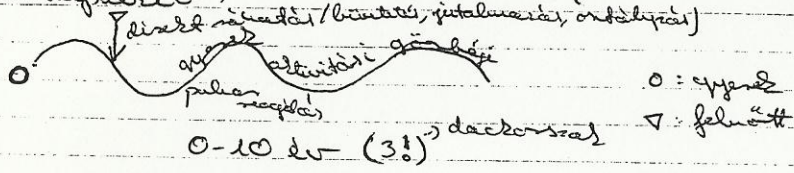 direkt ráhatás/büntetés, jutalmazás, osztályzás)
gyerek aktivitási görbéje
puha reagálás
O: gyerek
∇: felnőtt
0-10 év (3!) → dackorszak